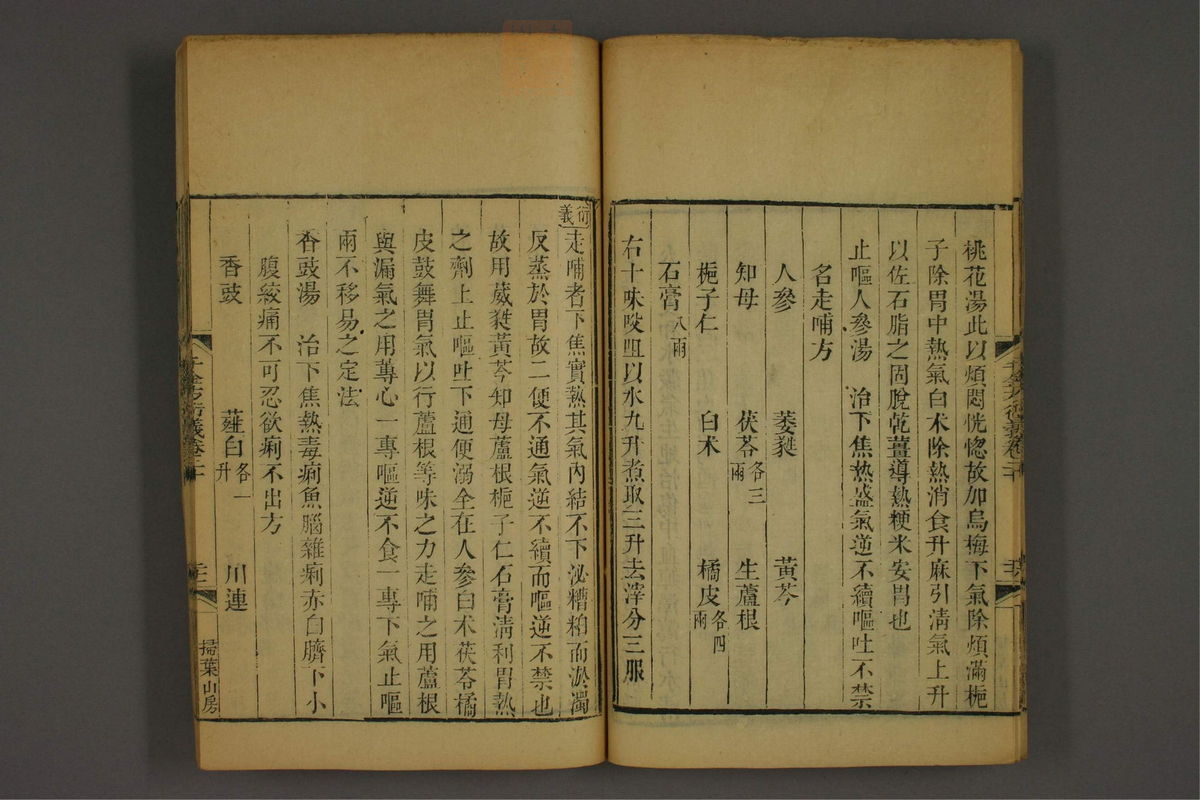 桃花湯此以煩悶恍惚故加烏梅下氣除煩滿梔
子除胃中熱氣白术除熱消食升麻引淸氣上升
以佐石脂之固脫乾薑導熱粳米安胃也
止嘔人參湯 治下焦熱盛氣逆不續嘔吐不禁
名走哺方
人參 萎蕤 黃芩
知母 茯苓各三兩 生蘆根
梔子仁 白术 橘皮各四兩
石膏八兩
右十味㕮咀以水九升煮取三升去滓分三服
衍義走哺者下焦實熱其氣內結不下泌糟粕而淤濁
反蒸於胃故二便不通氣逆不續而嘔逆不禁也
故用葳蕤黃芩知母蘆根梔子仁石膏淸利胃熱
之劑上止嘔吐下通便溺全在人參白术茯苓橘
皮鼓舞胃氣以行蘆根等味之力走哺之用蘆根
與漏氣之用蓴心一專嘔逆不食一專下氣止嘔
兩不移易之定法
香豉湯 治下焦熱毒痢魚腦雜痢赤白臍下小
腹絞痛不可忍欲痢不出方
香豉 薤白各一升 川連
千金方衍義卷二十
掃葉山房